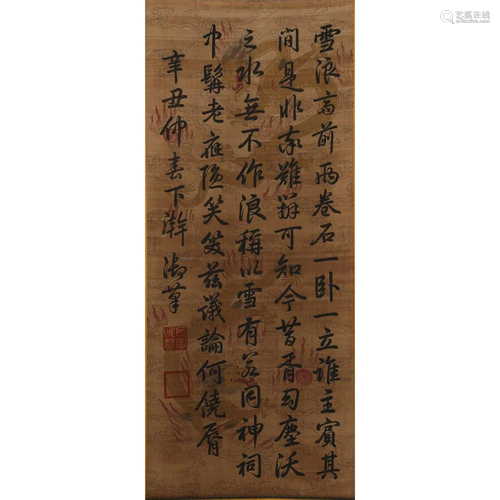 雪浪齋前兩卷石一卧一立誰主賓其
間是非難辨可知今昔胥塵沃
之水無不作浪稱以雪有若同神祠
中髯老應隱笑發茲議論何饒脣
辛丑仲春下澣御筆
艺狐在线